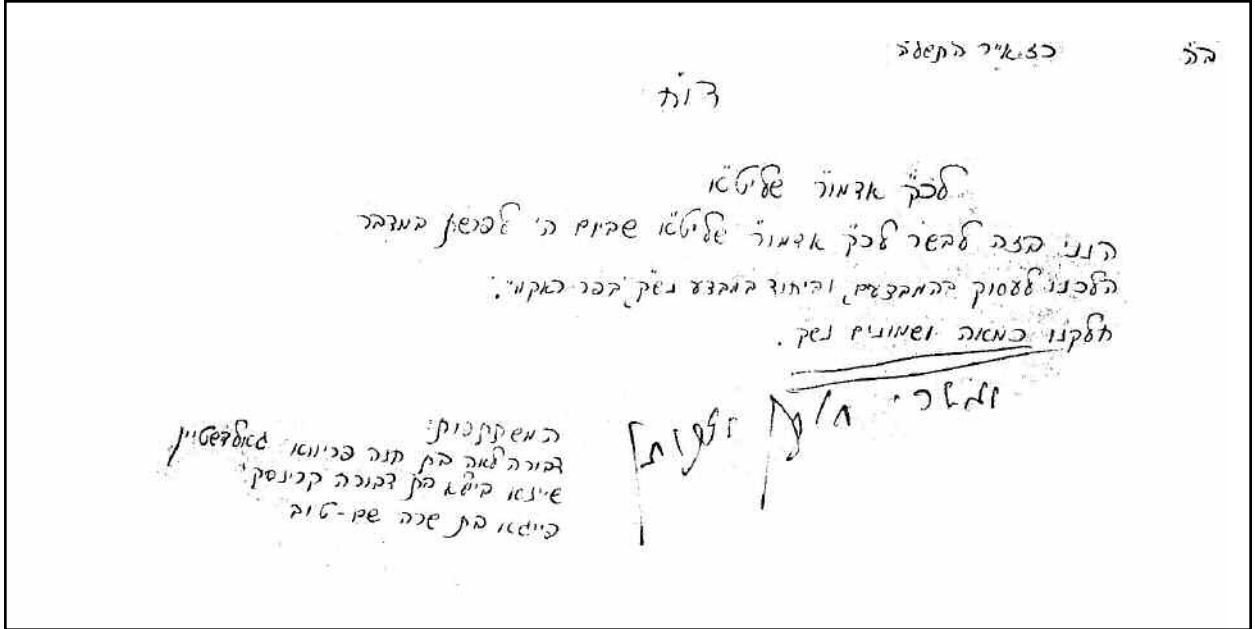 ב"ה כז אייר ה'תשל"ה
דו"ח
לכ"ק אדמו"ר שליט"א
הנני בזה לבשר לכ"ק אדמו"ר שליט"א שביום ה' לפרשת במדבר
הלכנו לעסוק בהמבצעים, וביחוד במבצע נש"ק, בפר
חלקנו כמאה ושמונים נש"ק.
המשתתפות:
דבורה לאה בת חנה פריווא גאלדשטיין
שיינא ביילא בת דבורה קרינסקי
פייגא בת שרה שם-טוב